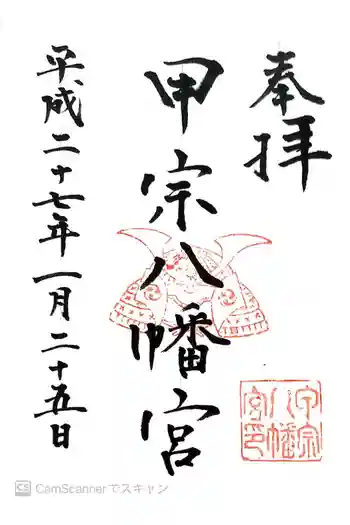 奉拝
甲宗八幡宮
平成二十七年一月二十五日
甲宗八幡宮印
CS CamScannerでスキャン